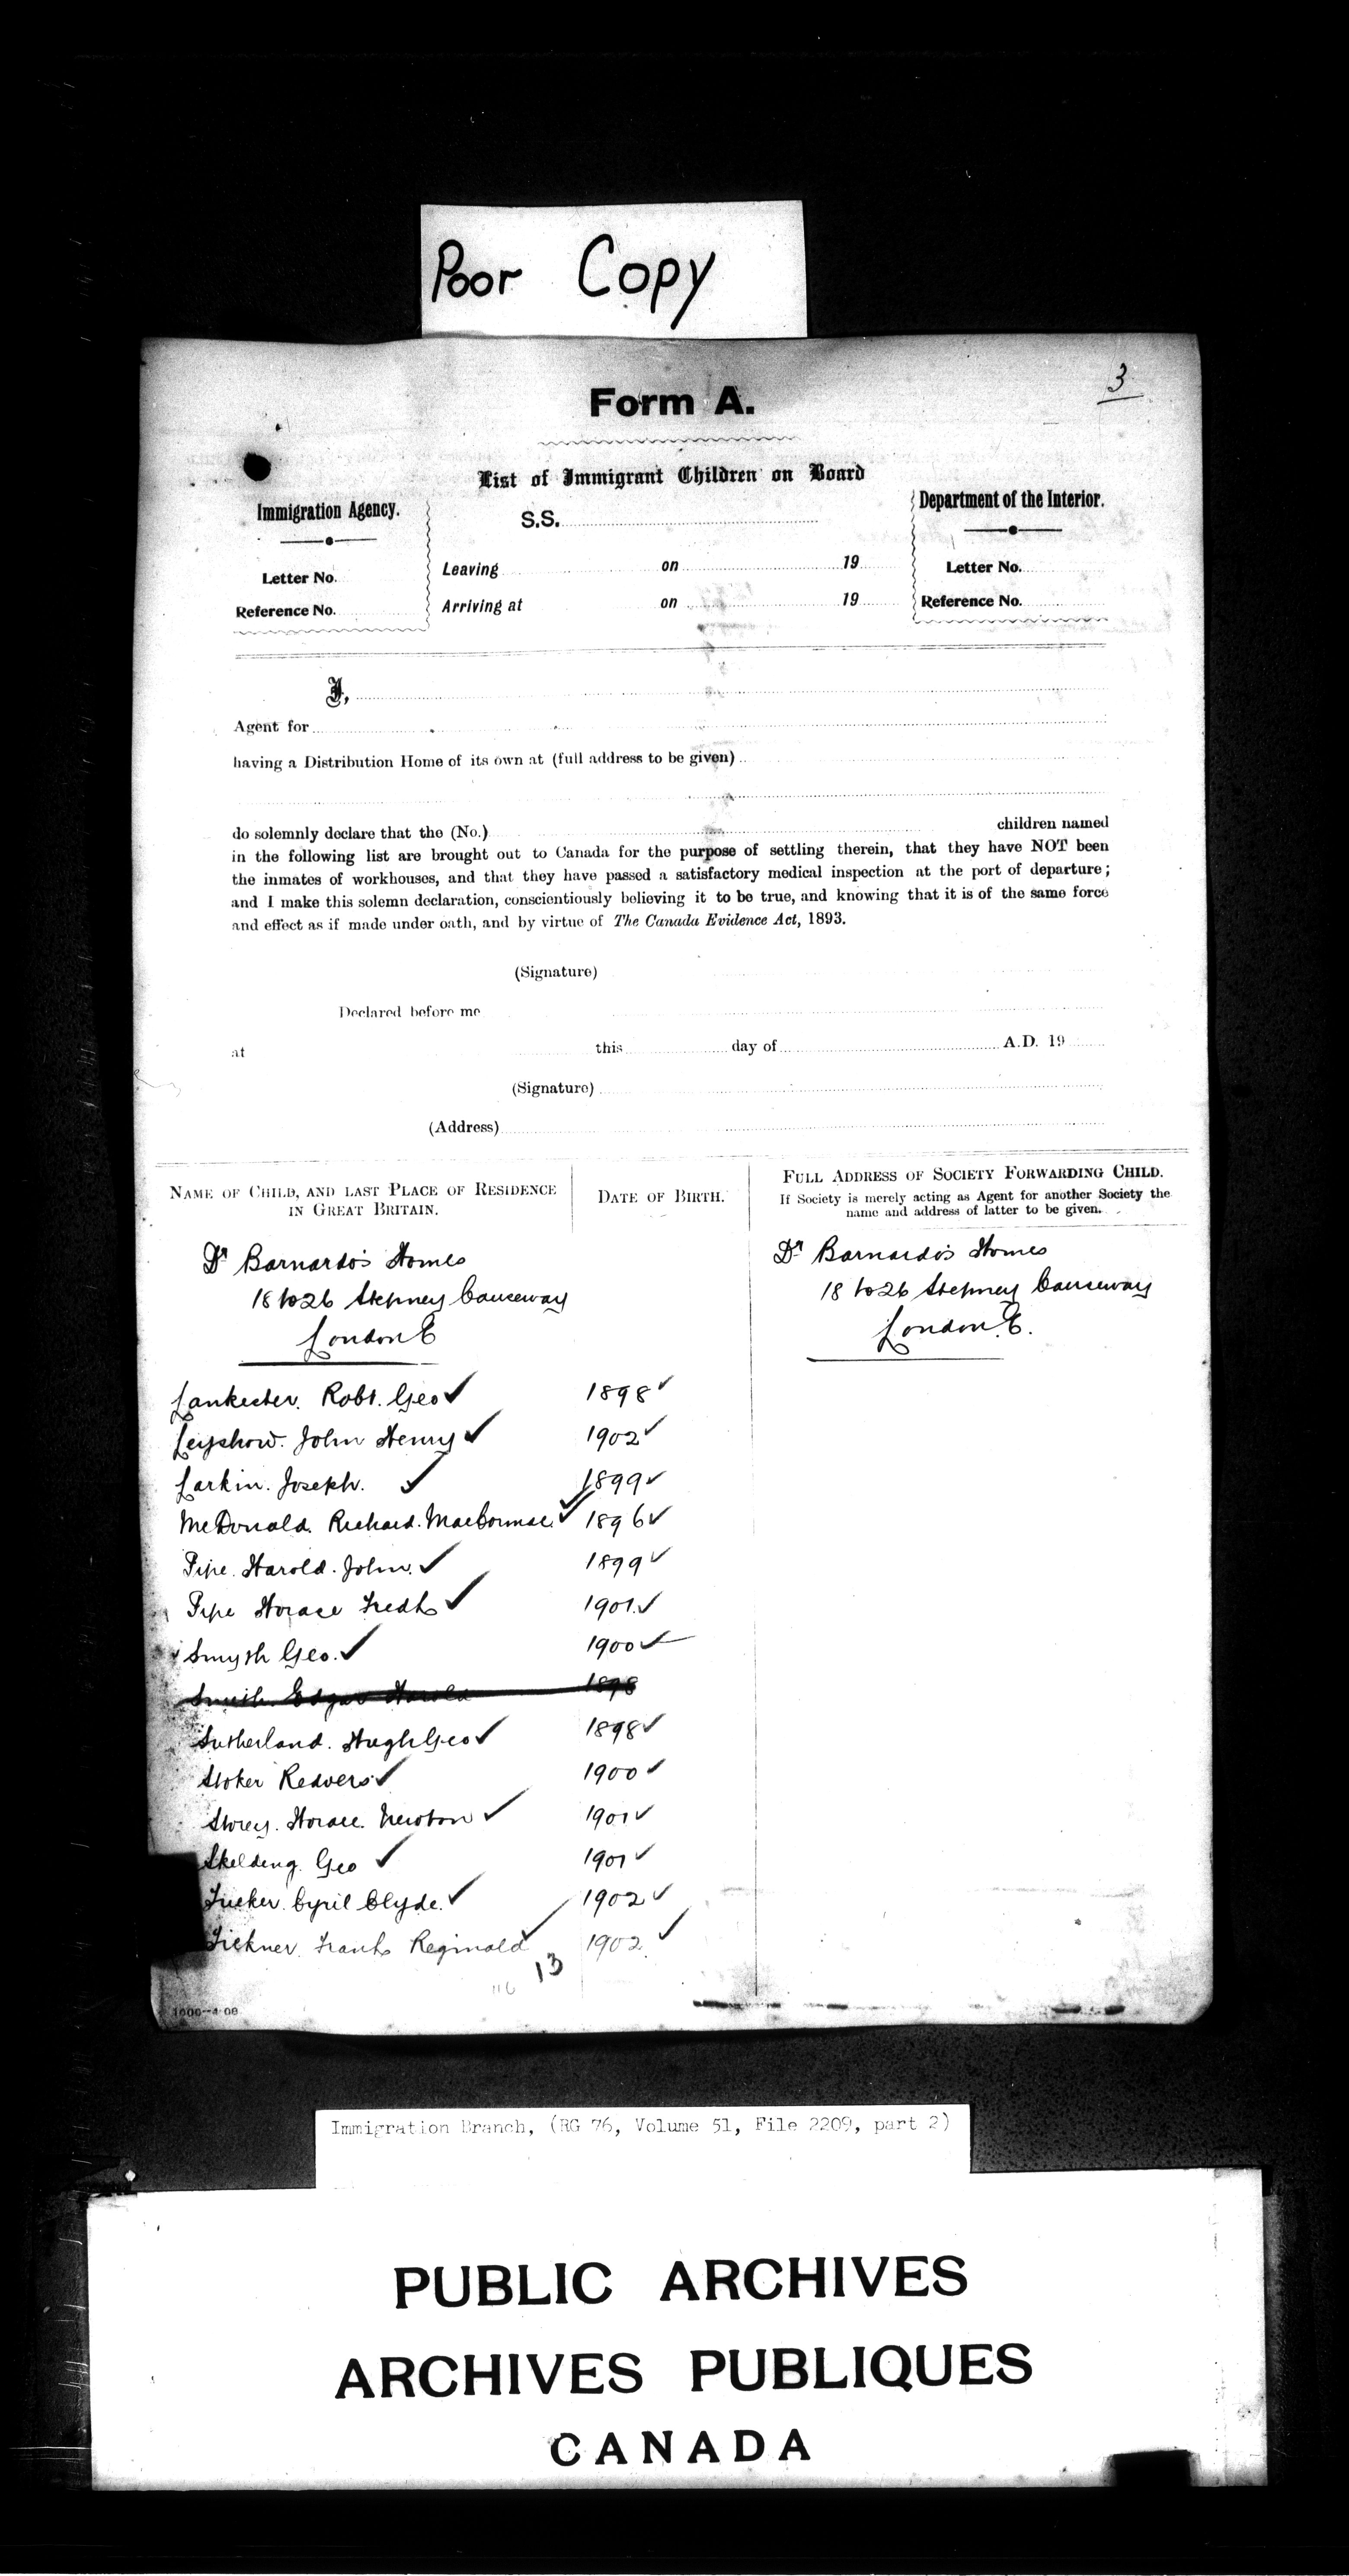 Poor Copy
3
Form A.
List of Immigrant Children on Board
Immigration Agency.
Letter No.
Reference No.
S.S.
Leaving on 19
Arriving at on 19
Department of the Interior.
Letter No.
Reference No.
I,
Agent for
having a Distribution Home of its own at (full address to be given)
do solemnly declare that the (No.) children named
in the following list are brought out to Canada for the purpose of settling therein, that they have NOT been
the inmates of workhouses, and that they have passed a satisfactory medical inspection at the port of departure;
and I make this solemn declaration, conscientiously believing it to be true, and knowing that it is of the same force
and effect as if made under oath, and by virtue of The Canada Evidence Act, 1893.
(Signature)
Declared before me
at this day of A.D. 19
(Signature)
(Address)
NAME OF CHILD, AND LAST PLACE OF RESIDENCE
IN GREAT BRITAIN.
DATE OF BIRTH.
FULL ADDRESS OF SOCIETY FORWARDING CHILD.
If Society is merely acting as Agent for another Society the
name and address of latter to be given.
Dr Barnardo's Homes
18 to 26 Stepney Causeway
London E
Dr Barnardo's Homes
18 to 26 Stepney Causeway
London. E.
Lankester. Robt. Geo ✓ 1898 ✓
Leyshow. John Henry ✓ 1902 ✓
Larkin. Joseph. ✓ 1899 ✓
McDonald. Richard. MacCormac. ✓ 1896 ✓
Pipe. Harold. John. ✓ 1899 ✓
Pipe Horace Fredk ✓ 1901. ✓
Smyth Geo. ✓ 1900 ✓
Smith. Edgar Harold 1898
Sutherland. Hugh Geo ✓ 1898 ✓
Stoker Redvers ✓ 1900 ✓
Storey. Horace. Newton ✓ 1901 ✓
Skelding. Geo ✓ 1901 ✓
Tucker. Cyril Clyde. ✓ 1902 ✓
Tickner. Frank Reginald ✓ 1902. ✓
13
1000--4-08
Immigration Branch, (RG 76, Volume 51, File 2209, part 2)
PUBLIC ARCHIVES
ARCHIVES PUBLIQUES
CANADA